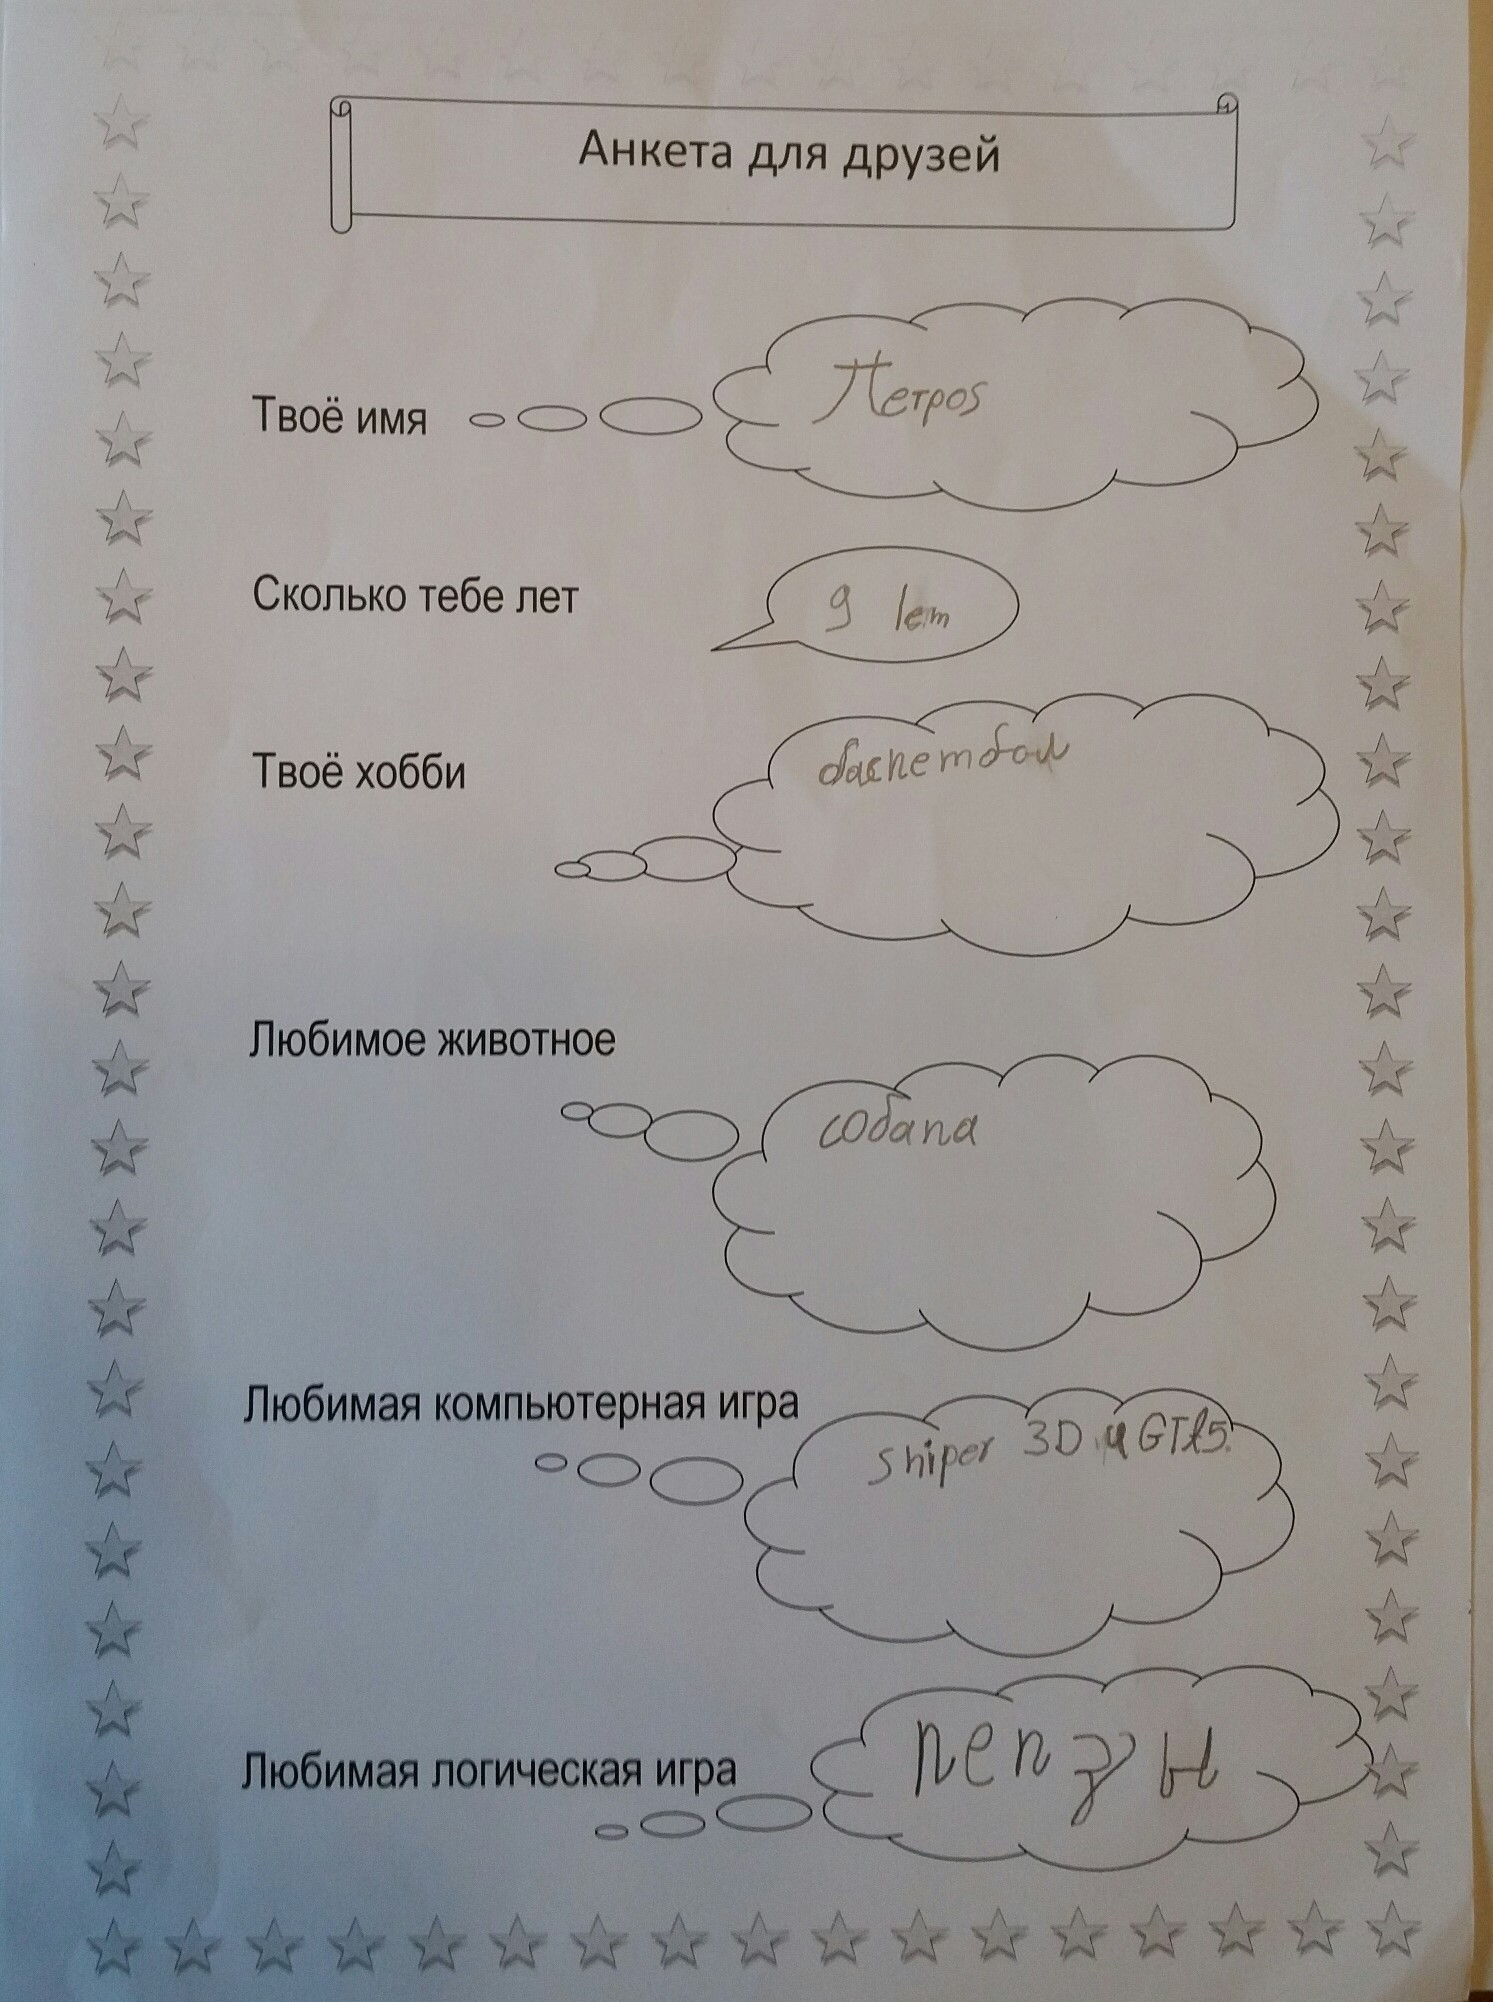 Анкета для друзей
Твоё имя
Петроs
Сколько тебе лет
9 lет
Твоё хобби
баскетбол
Любимое животное
собака
Любимая компьютерная игра
sniper 3D и GTA5.
Любимая логическая игра